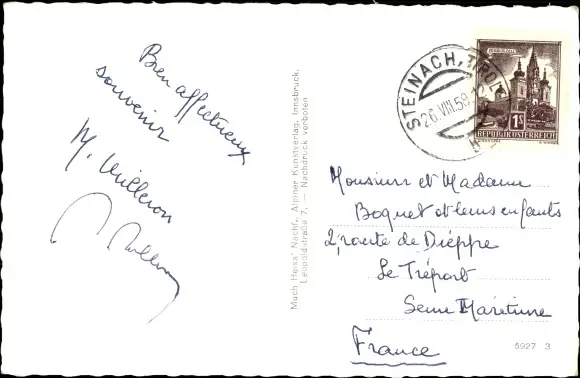 Bien affectueux
souvenir
M. Willeron
Much Heiss' Nachf., Alpiner Kunstverlag, Innsbruck,
Leopoldstraße 7, — Nachdruck verboten
STEINACH, TIROL
26.VIII.59
1S
REPUBLIK ÖSTERREICH
Monsieur et Madame
Boquet et leurs enfants
2, route de Dieppe
Le Tréport
Seine Maritime
France
5927 3